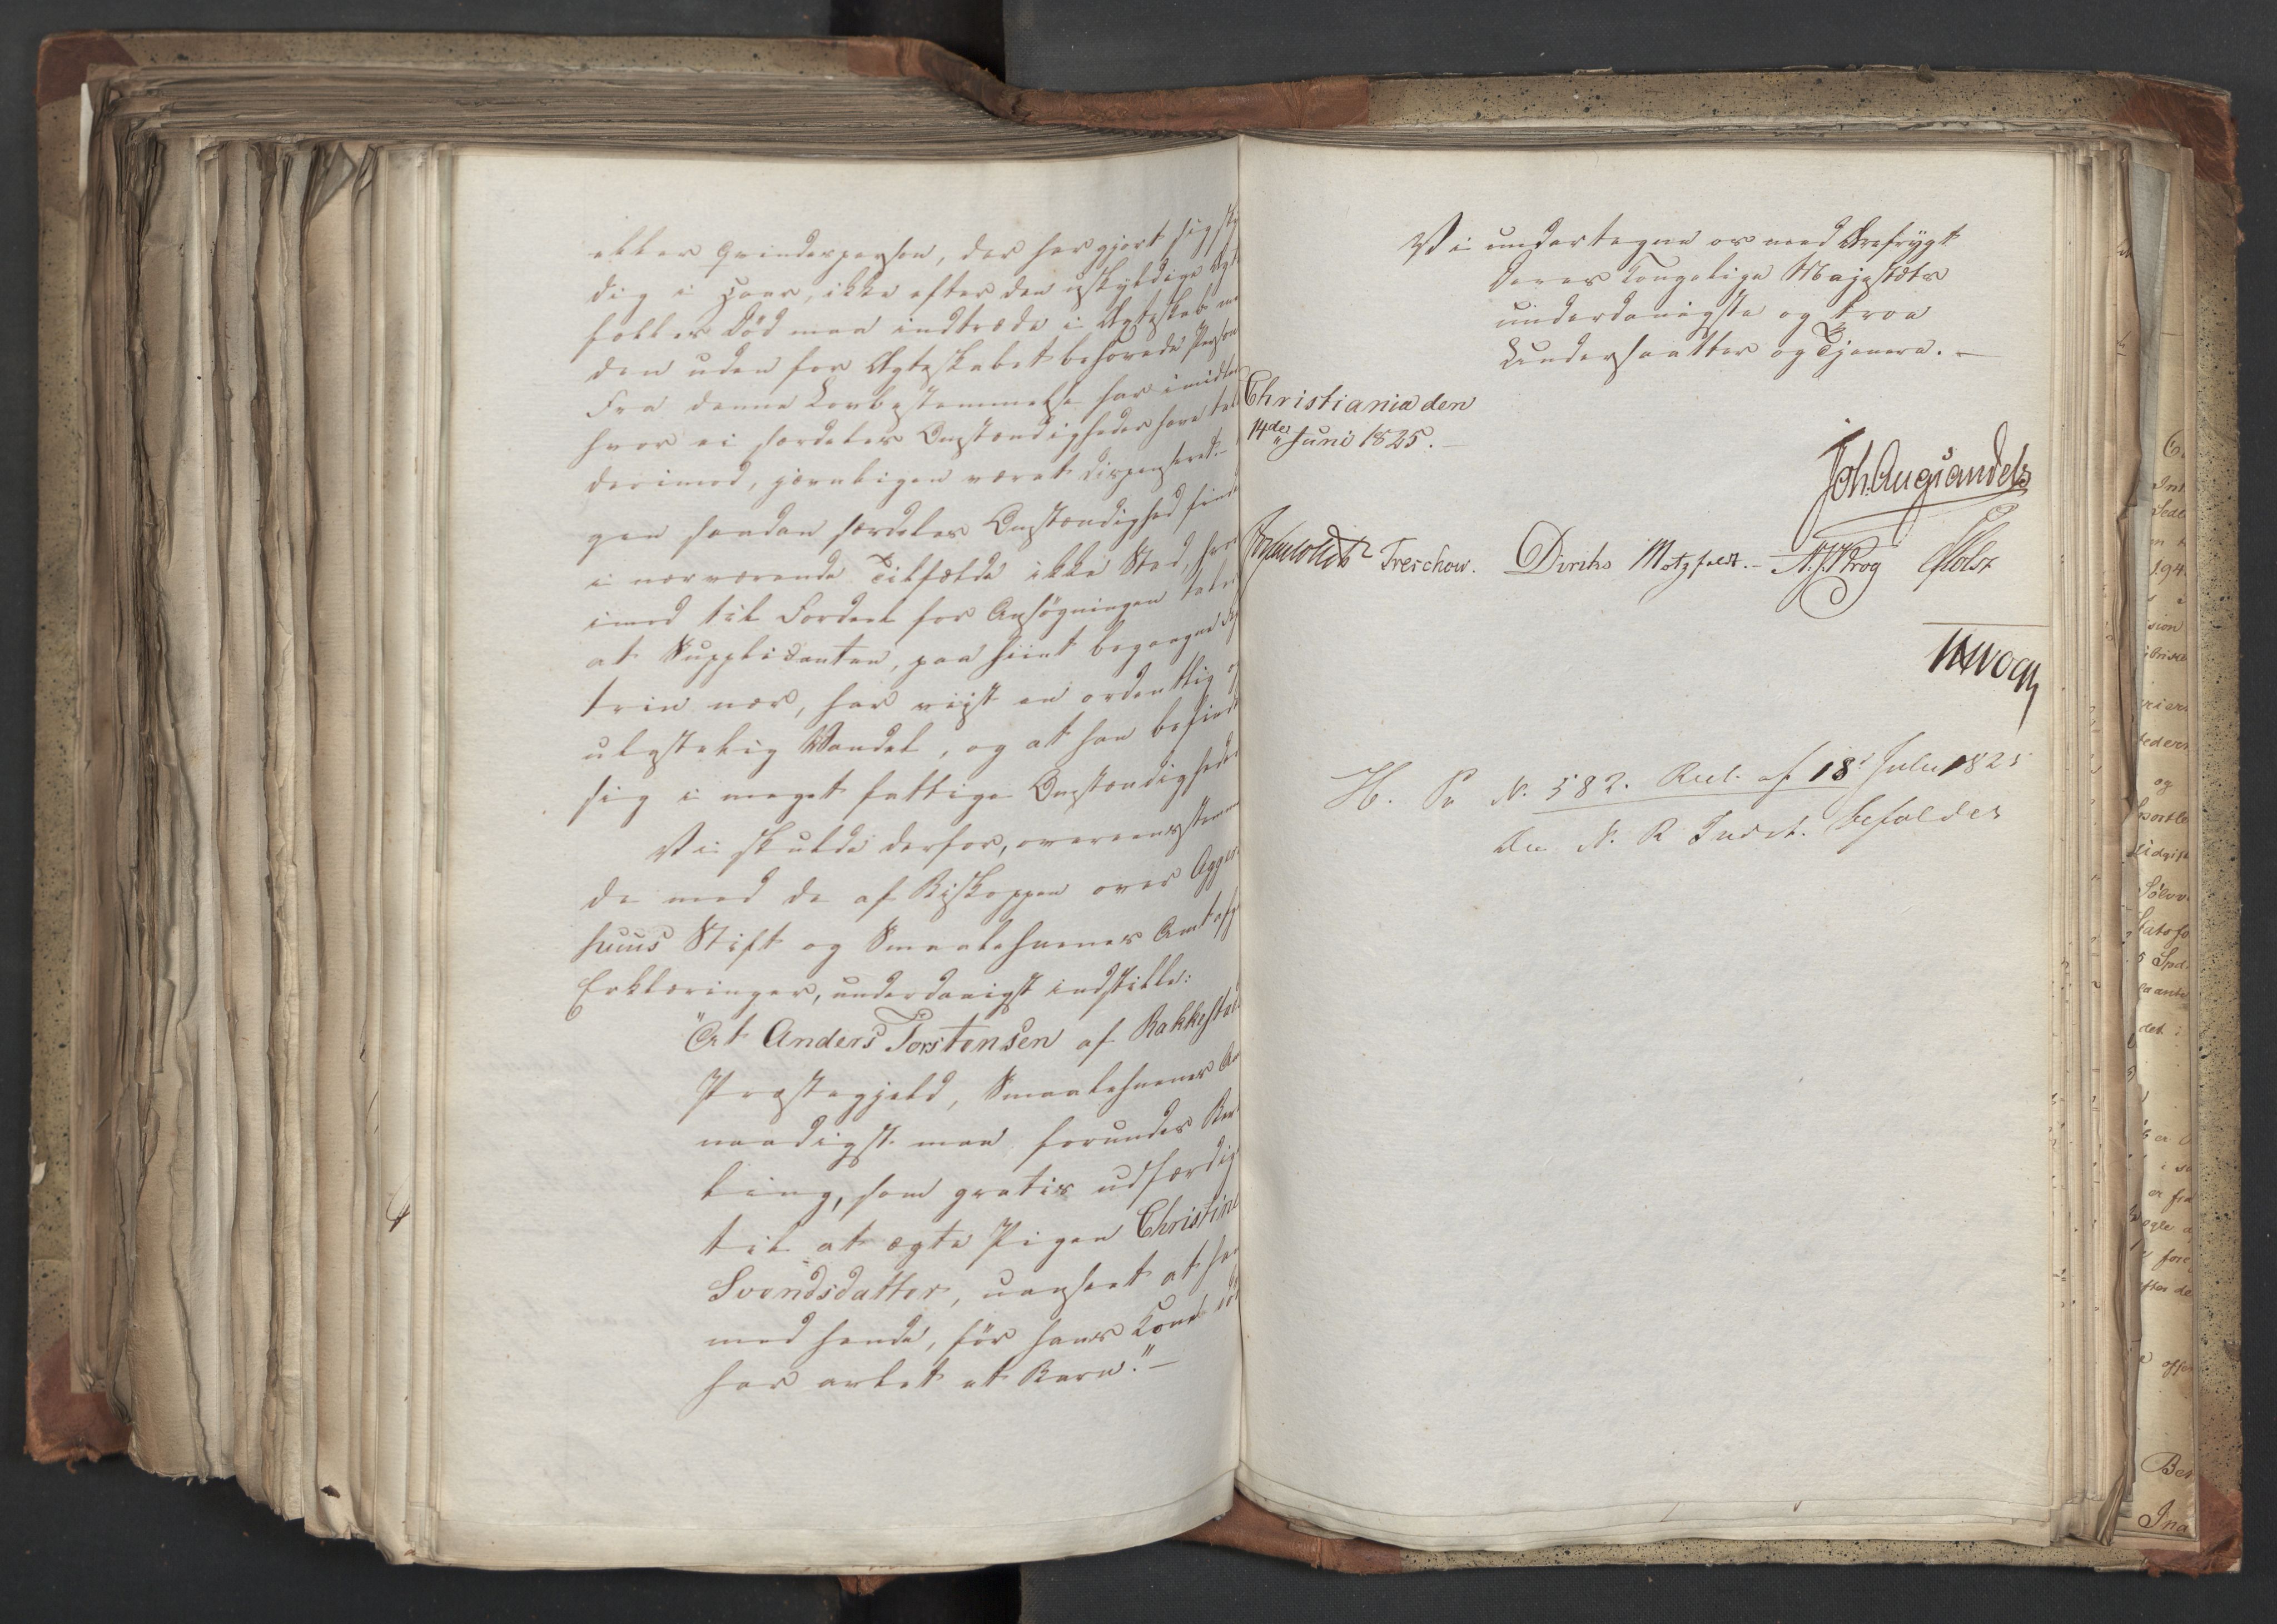 eller Qvindesperson, der har gjort sig sky
dig i Hoer, ikke efter den uskyldige Ægte
fælles Død maa indtræde i Ægteskab me
den uden for Ægteskabet besovede Person
Fra denne Lovbestemmelse har imidler
hvor ei særdeles Omstændigheder have tal
derimod, jævnligen været dispenseret. –
gen saadan særdeles Omstændighed finde
i nærværende Tilfælde ikke Sted, hvor
imod til Fordeel for Ansøgningen taler
at Supplicanten, paa hiint begaaede Feil
trin nær, har viist en ordentlig og
ulastelig Vandel, og at han befinder
sig i meget fattige Omstændigheder
Vi skulde derfor, overeensstemmen
de med de af Biskoppen over Agger
huus Stift og Smaalehnenes Amt afg
Erklæringer, underdanigst indstille:
"At Anders Torstensen af Rakkestad
Præstegjeld, Smaalehnenes Am
naadigst maa forundes Bevil
ling, som gratis udfærdig
til at ægte Pigen Christine
Svendsdatter, uanseet at han
med hende, før hans Kones Dø
har avlet et Barn." –
Vi undertegne os med Ærefrygt
Deres Kongelige Majestæts
underdanigste og troe
Undersaatter og Tjenere. –
Christiania den
14de Juni 1825. –
Joh. Aug. Sandels
Treschow. Diriks Motzfeldt. – A. J. Krog Holst
H. Pr N. 582. Resl. af 18d Juli 1825
Den N. R. Indst. bifaldes